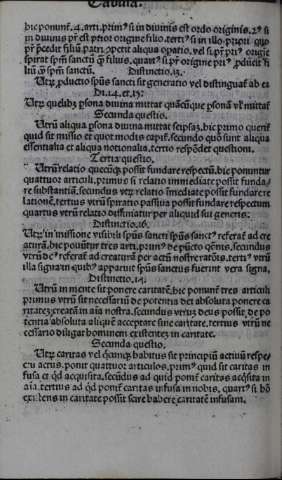 Tabula.
hic ponunt̃. 4. arti. prim⁹ si in diuinis est ordo originis. 2⁹ si
in diuinis pr̃ est prior origine filio. terti⁹ si in illo priori quo
pr̃ p̃cedit filiũ patri cõpetit aliqua oꝑatio. vel si pr̃ pri⁹ origine
spirat spm̃ sanctũ q̃ filius, quart⁹ si pr̃ origine pri⁹ ꝓducit fi
liũ q̃ spm̃ sanctũ. Distinctio. 13.
Vtrũ ꝓductio spũs sancti sit generatio vel distinguat̃ ab ea
Di. 14. et. 15.
Vtrũ quelibꝫ ꝑsona diuina mittat quãcũqꝫ ꝑsonã vl' mittat̃
Secunda questio.
Vtrũ aliqua ꝑsona diuina mittat seipsaꝫ. hic primo querit̃
quid sit missio et quot modis capit̃. secundo quõ sunt aliqua
essentialia et aliqua notionalia. tertio respõdet questioni.
Tertia questio.
Vtrũ relatio quecũqꝫ possit fundare respectũ. hic ponuntur
quattuor articuli. primus si relatio immediate possit funda
re substantiã. secundus vtꝝ relatio ĩmediate possit fundare re
lationẽ. tertius vtrũ spiratio passiua possit fundare respectum
quartus vtrũ relatio diffiniatur per aliquid sui generis.
Distinctio. 16.
Vtrũ in missione visibili spũs sancti spũs sanct⁹ referat̃ ad cre
aturã. hic mouẽtur tres arti. prim⁹ de p̃ueto q̃onis. secundus
vtrũ de⁹ referat̃ ad creaturã per actũ nostre ratõis. terti⁹ vtrũ
illa signa in quib⁹ apparuit spũs sanctus fuerint vera signa.
Distinctio. 17.
Vtrũ in mente sit ponere caritatẽ. hic ponunt̃ tres articuli
primus vtrũ sit necessariũ de potentia dei absoluta ponere ca
ritatẽ creatã in aĩa nostra. secundus vtruꝫ deus possit de po
tentia absoluta aliquẽ acceptare sine caritate. tertius vtrũ ne
cessario diligat hominem existentem in caritate.
Secunda questio.
Vtrũ caritas vel q̃cunqꝫ habitus sit principiũ actiuũ respe
ctu actus. ponit quatuor articulos. prim⁹ quid sit caritas in
fusa et q̃d acquisita. secũdus ad quid ponit̃ caritas acq̃sita in
aĩa. tertius ad q̃d ponit̃ caritas infusa in nobis. quart⁹ si hõ
existens in caritate possit scire habere caritatẽ infusam.